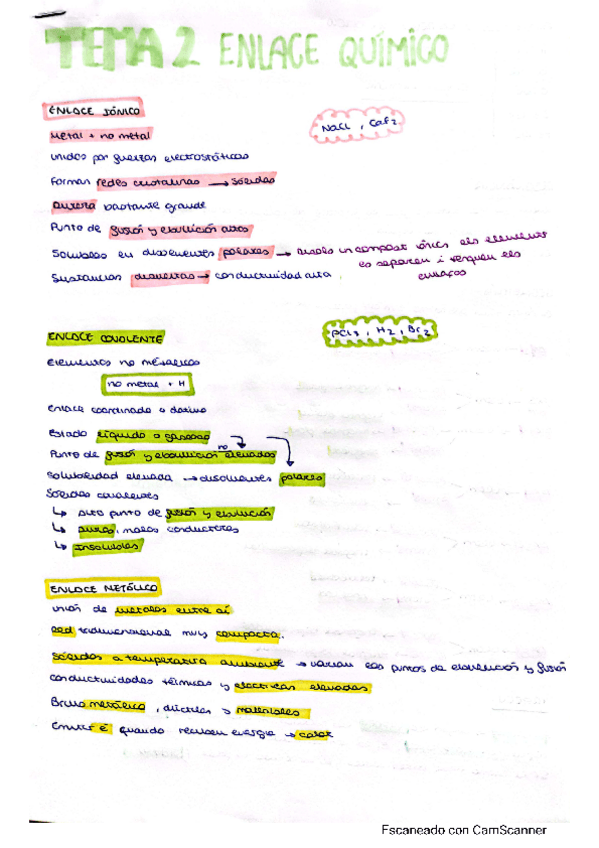 TEMA 2 ENLACE QUÍMICO
ENLACE IÓNICO
NaCl, CaF2
Metal + no metal
unidos por fuerzas electrostáticas
Forman redes cristalinas → sólidos
Dureza bastante grande
Punto de fusión y ebullición altos
Solubles en disolventes polares → un compost iònics els elements
es separen i trenquen els
enllaços
Sustancias disueltas → conductividad alta
ENLACE COVALENTE
PCl3, H2, Br2
elementos no metálicos
no metal + H
enlace coordinado o dativo
Estado líquido o gaseoso
Punto de fusión y ebullición no elevados
Solubilidad elevada → disolventes polares
Sólidos covalentes
↳ alto punto de fusión y ebullición
↳ duros, malos conductores
↳ Insolubles
ENLACE METÁLICO
unión de metales entre sí
Red tridimensional muy compacta.
Sólidos a temperatura ambiente → varian los puntos de ebullición y fusión
conductividades térmicas y eléctricas elevadas
Brillo metálico, dúctiles y maleables
Emitir é cuando reciben energia → calor
Escaneado con CamScanner